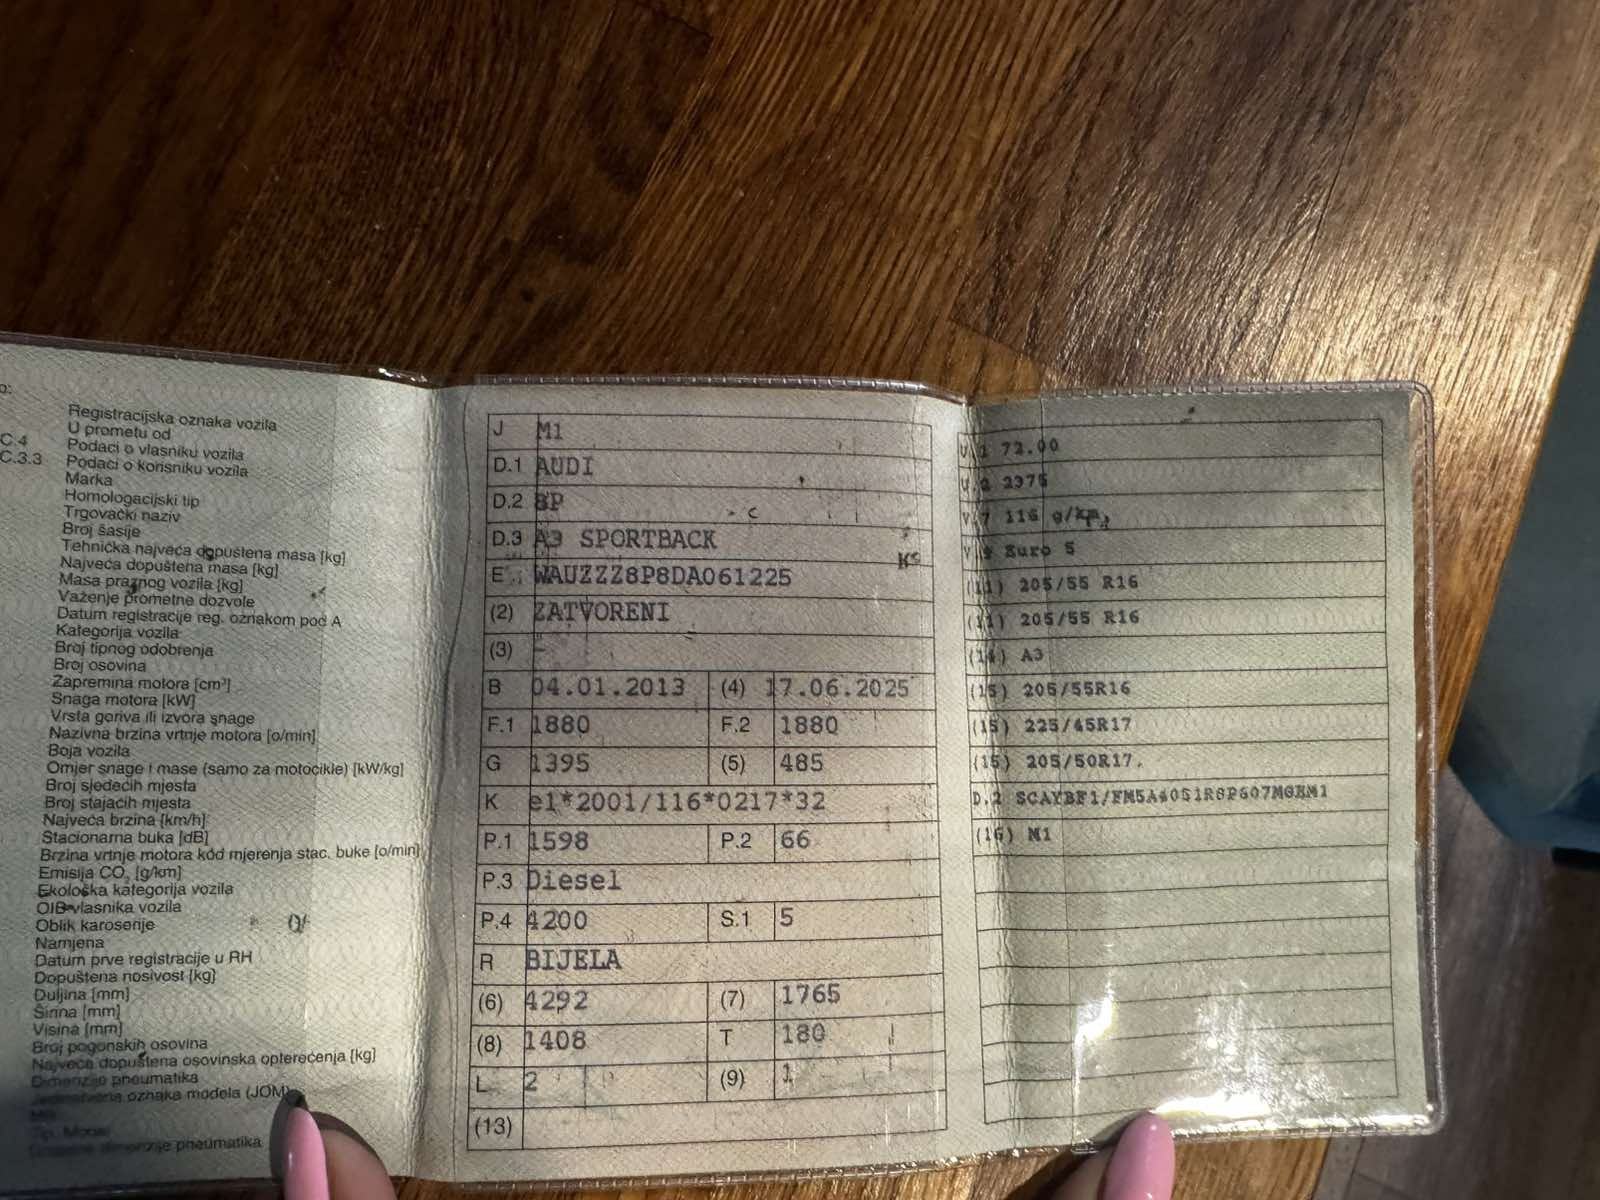 C.4
C.3.3
Registracijska oznaka vozila
U prometu od
Podaci o vlasniku vozila
Podaci o korisniku vozila
Marka
Homologacijski tip
Trgovački naziv
Broj šasije
Tehnička najveća dopuštena masa [kg]
Najveća dopuštena masa [kg]
Masa praznog vozila [kg]
Važenje prometne dozvole
Datum registracije reg. oznakom pod A
Kategorija vozila
Broj tipnog odobrenja
Broj osovina
Zapremina motora [cm³]
Snaga motora [kW]
Vrsta goriva ili izvora snage
Nazivna brzina vrtnje motora [o/min]
Boja vozila
Omjer snage i mase (samo za motocikle) [kW/kg]
Broj sjedećih mjesta
Broj stajaćih mjesta
Najveća brzina [km/h]
Stacionarna buka [dB]
Brzina vrtnje motora kod mjerenja stac. buke [o/min]
Emisija CO₂ [g/km]
Ekološka kategorija vozila
OIB vlasnika vozila
Oblik karoserije
Namjena
Datum prve registracije u RH
Dopuštena nosivost [kg]
Duljina [mm]
Širina [mm]
Visina [mm]
Broj pogonskih osovina
Najveća dopuštena osovinska opterećenja [kg]
Dimenzije pneumatika
Jedinstvena oznaka modela (JOM)
dimenzije pneumatika
J M1
D.1 AUDI
D.2 8P
D.3 A3 SPORTBACK
E WAUZZZ8P8DA061225
(2) ZATVORENI
(3) -
B 04.01.2013 (4) 17.06.2025
F.1 1880 F.2 1880
G 1395 (5) 485
K e1*2001/116*0217*32
P.1 1598 P.2 66
P.3 Diesel
P.4 4200 S.1 5
R BIJELA
(6) 4292 (7) 1765
(8) 1408 T 180
L 2 (9) 1
(13)
U.1 72.00
U.2 2375
V.7 116 g/km
V.9 Euro 5
(11) 205/55 R16
(11) 205/55 R16
(14) A3
(15) 205/55R16
(15) 225/45R17
(15) 205/50R17.
D.2
(16) M1